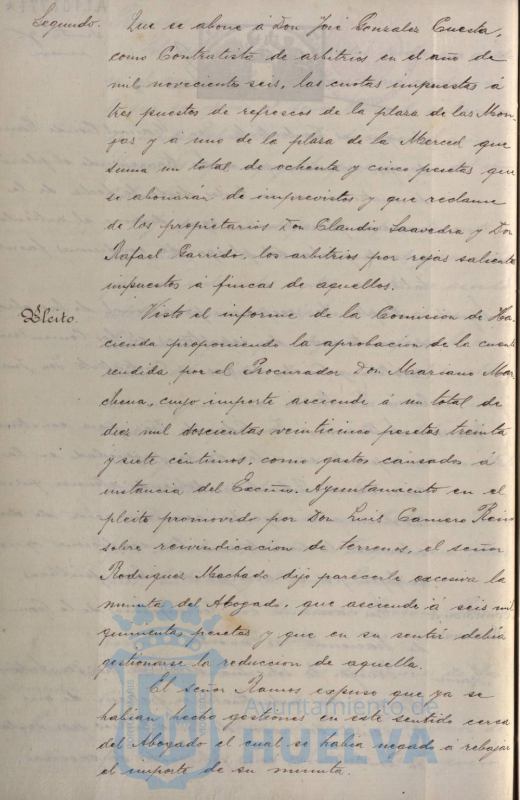 Segundo. Que se abone á Don José Gonzalez Cuesta,
como Contratista de arbitrios en el año de
mil novecientos seis, las cuotas impuestas á
tres puestos de refrescos de la plaza de las Mon-
jas y á uno de la plaza de la Merced que
suma un total de ochenta y cinco pesetas que
se abonarán de imprevistos y que reclame
de los propietarios Don Claudio Saavedra y Don
Rafael Garrido, los arbitrios por rejas saliente
impuestos á fincas de aquellos.
Pleito. Visto el informe de la Comision de Ha-
cienda proponiendo la aprobacion de la cuenta
rendida por el Procurador Don Mariano Mar-
chena, cuyo importe asciende á un total de
diez mil doscientas veinticinco pesetas treinta
y siete céntimos, como gastos causados á
instancia del Excmo. Ayuntamiento en el
pleito promovido por Don Luis Camero Rein
sobre reivindicacion de terrenos, el señor
Rodriguez Machado dijo parecerle excesiva la
minuta del Abogado, que asciende á seis mil
quinientas pesetas y que en su sentir debia
gestionarse la reduccion de aquella.
El señor Ramos expuso que ya se
habian hecho gestiones en este sentido cerca
del Abogado el cual se habia negado á rebajar
el importe de su minuta.
Ayuntamiento de
HUELVA